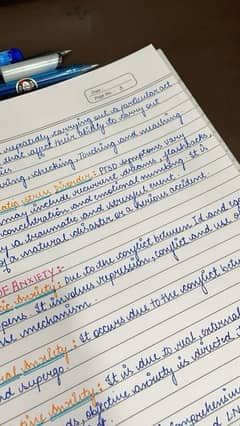 Date
Page No.
repeatedly carrying out a particular act
that affect their ability to carry out
checking, touching and washing
stress disorder : PTSD symptoms vary
may include recurrent dreams, flashbacks,
concentration and emotional numbing. It is
a traumatic and stressful event
of a natural disaster or a serious accident.
OF ANXIETY :-
Anxiety : Due to the conflict between Id and ego
It involves repression, conflict and use of
mechanism.
Anxiety : It occurs due to the conflict between
and superego.
Anxiety : It is due to real, external
objective anxiety is directed
comprehensive